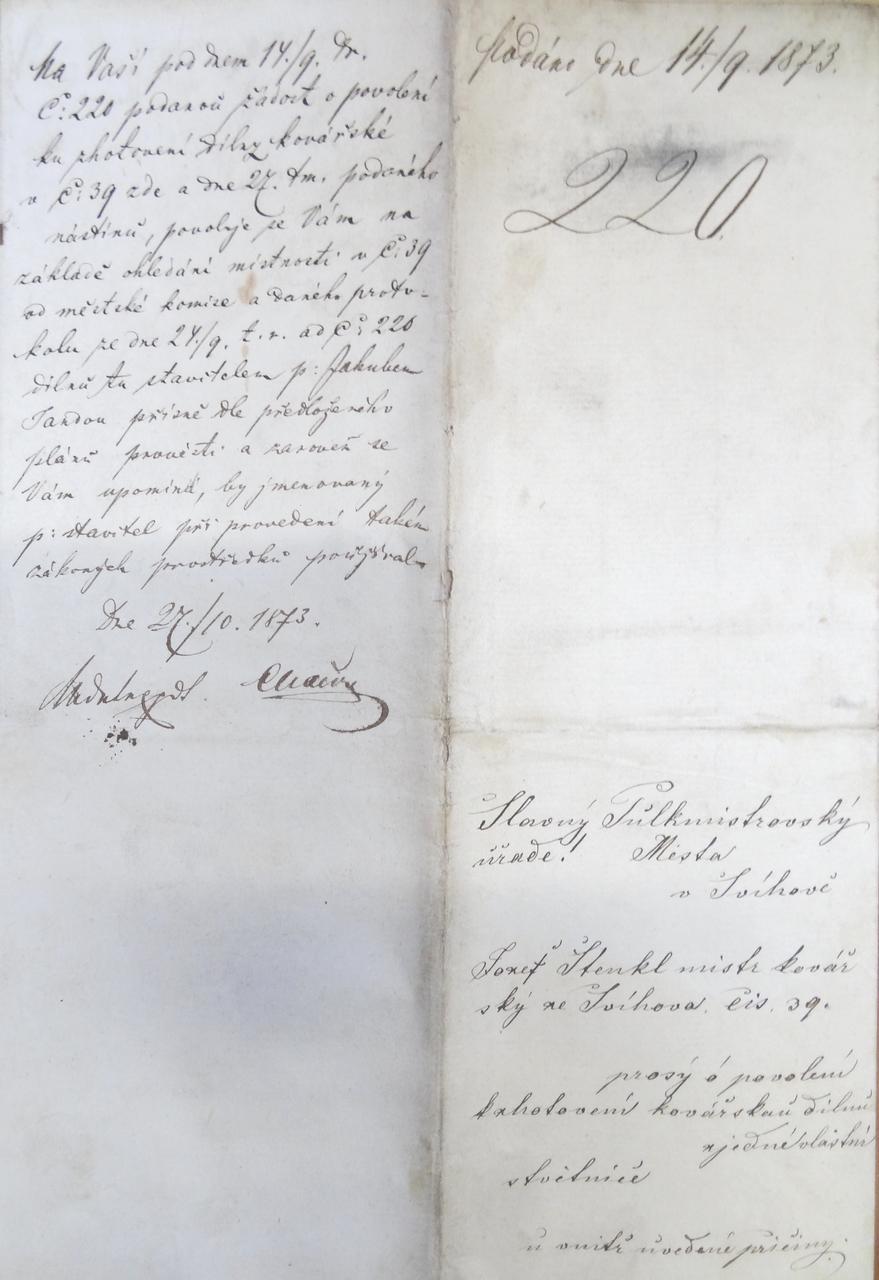 Na Vaší pod dnem 14./9. tr.
Č: 220 podanou žádost o povolení
ku zhotovení dílny kovářské
v Č: 39 zde a dne 27. tm. podaného
nástinu, povoluje se Vám na
základě ohledání místnosti v Č: 39
od městské komise a daného proto-
kolu ze dne 24/9. t. r. ad Č: 220
dílnu tu stavitelem p: Jakubem
Jandou přísně dle předloženého
plánu provésti a zaroveň se
Vám upomíná, by jmenovaný
p: stavitel při provedení takém
zákoných prostředků používal
Dne 27./10. 1873.
Podáno dne 14./9. 1873.
220.
Slavný Půlkmistrovský
úřade! Města
v Švihově
Jozef Štenkl mistr kovář
ský ze Švihova. čis. 39.
prosý ó povolení
kzhotovení kovářskau dílnu
zjedné vlastní
stvětniče
u vnitř uvedené přičiny.